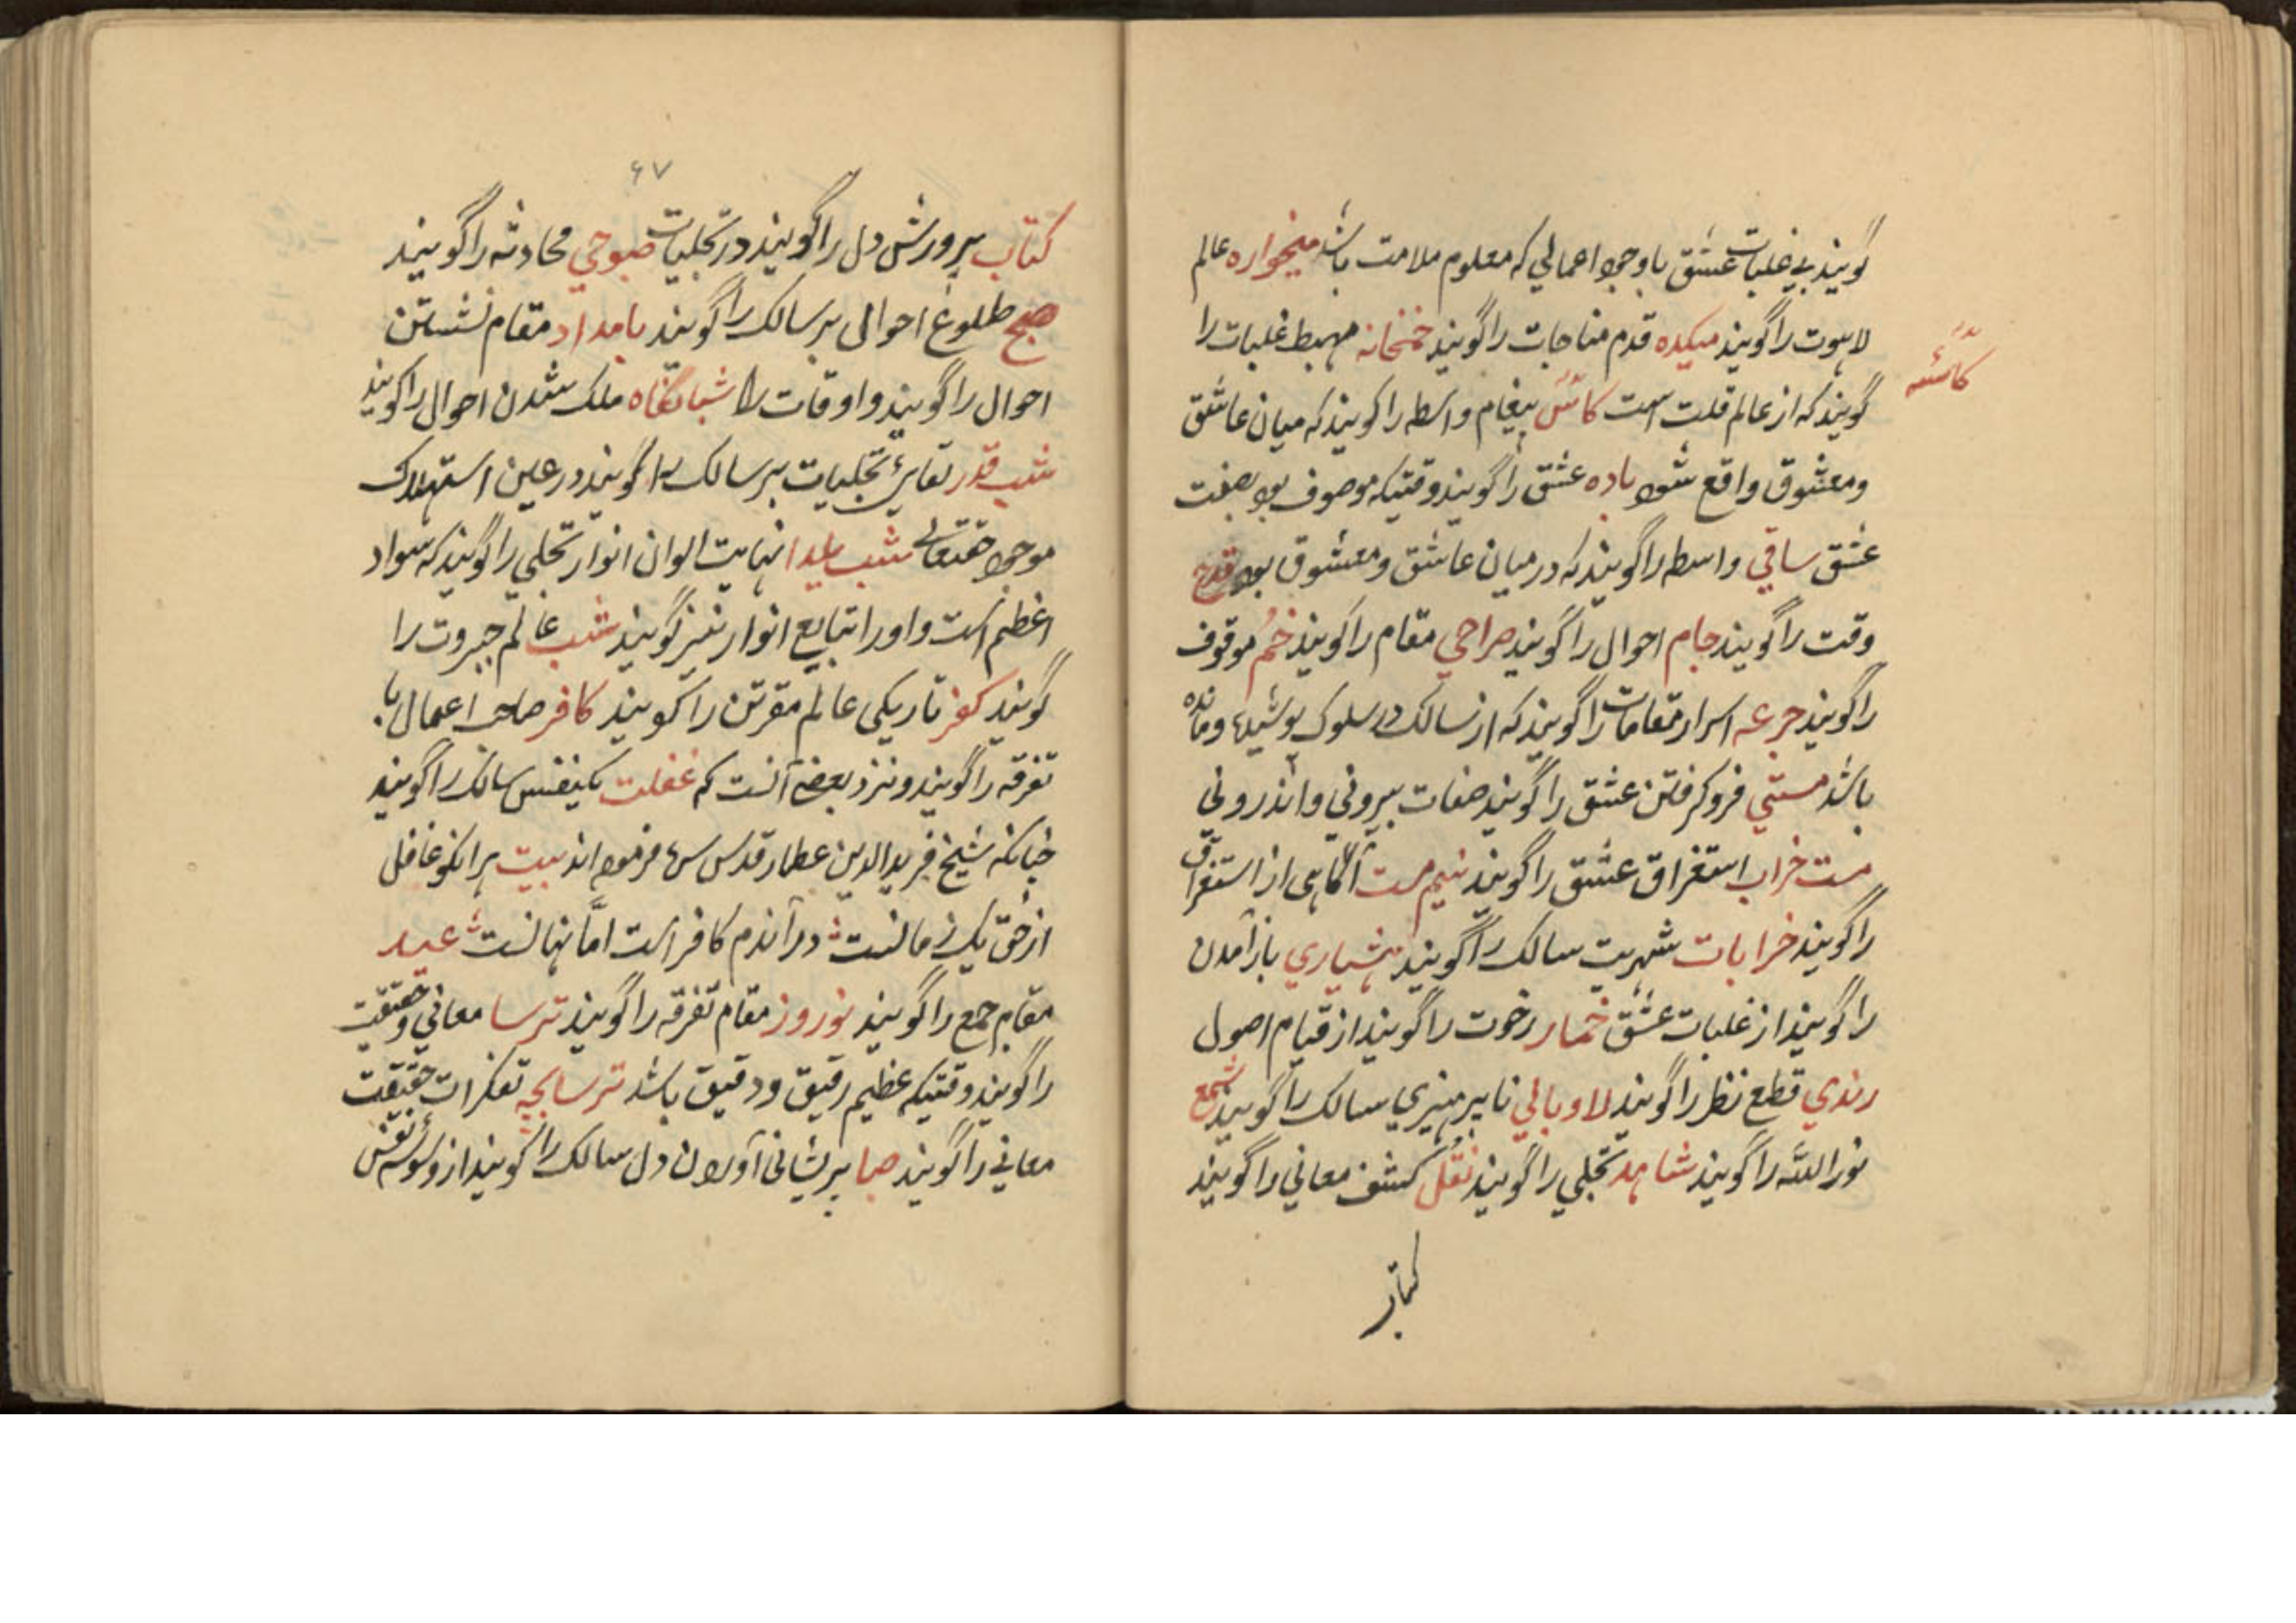 گویند بی غلبات عشق با وجود اعمالی که معلوم ملامت باشد میخواره عالم
لاهوت را گویند میکده قدم مناجات را گویند خمخانه مهبط غلبات را
گویند که از عالم قلت است کاس پیغام واسطه را گویند که میان عاشق
کاسه
و معشوق واقع شود باده عشق را گویند وقتیکه موصوف بود بصفت
عشق ساقی واسطه را گویند که در میان عاشق و معشوق بود قدح
وقت را گویند جام احوال را گویند صراحی مقام را گویند خم موقوف
را گویند جرعه اسرار مقامات را گویند که از سالک در سلوک پوشیده و مانده
باشد مستی فرو کرفتن عشق را گویند صفات بیرونی و اندرونی
مست خراب استغراق عشق را گویند نیم مست آگاهی از استغراق
را گویند خرابات شهریت سالک را گویند هشیاری باز آمدن
را گویند از غلبات عشق خمار رخوت را گویند از قیام اصول
رندی قطع نظر را گویند لاوبالی ناپرهیزی سالک را گویند شمع
نور الله را گویند شاهد تجلی را گویند نقل کشف معانی را گویند
کتاب
۶۷
کتاب پرورش دل را گویند در تجلیات صبوحی محادثه را گویند
صبح طلوع احوالی بر سالک را گویند بامداد مقام نشستن
احوال را گویند و اوقات را شبانگاه ملک شدن احوال را گویند
شب قدر بقای تجلیات بر سالک را گویند در عین استهلاک
موجود حقتعالی شب یلدا نهایت الوان انوار تجلی را گویند که سواد
اعظم است و او را تبایع انوار نیز گویند شب عالم جبروت را
گویند کفر تاریکی عالم را گویند کافر صاحب اعمال با
تفرقه را گویند و نزد بعضی آنست که غفلت یکنفس سالک را گویند
چنانکه شیخ فرید الدین عطار قدس سره فرموده اند بیت هر انکو غافل
از حق یک زمانست در آندم کافر است اما نهانست عید
مقام جمع را گویند نوروز مقام تفرقه را گویند ترسا معانی و حقیقت
را گویند وقتیکه عظیم رقیق و دقیق باشد ترسابچه تفکرات حقیقت
معانی را گویند صبا پریشانی آوردن دل سالک را گویند از وسوسه نفس